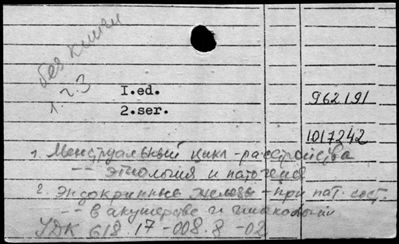 без книги
1.2.3
I.ed.
2.ser.
962191
1017242
1. Менструальный цикл - расстройства
-- этиология и патогенез
2. Эндокринные железы - при пат. сост.
-- в акушерстве и гинекологии
УДК 618.17-008.8-02